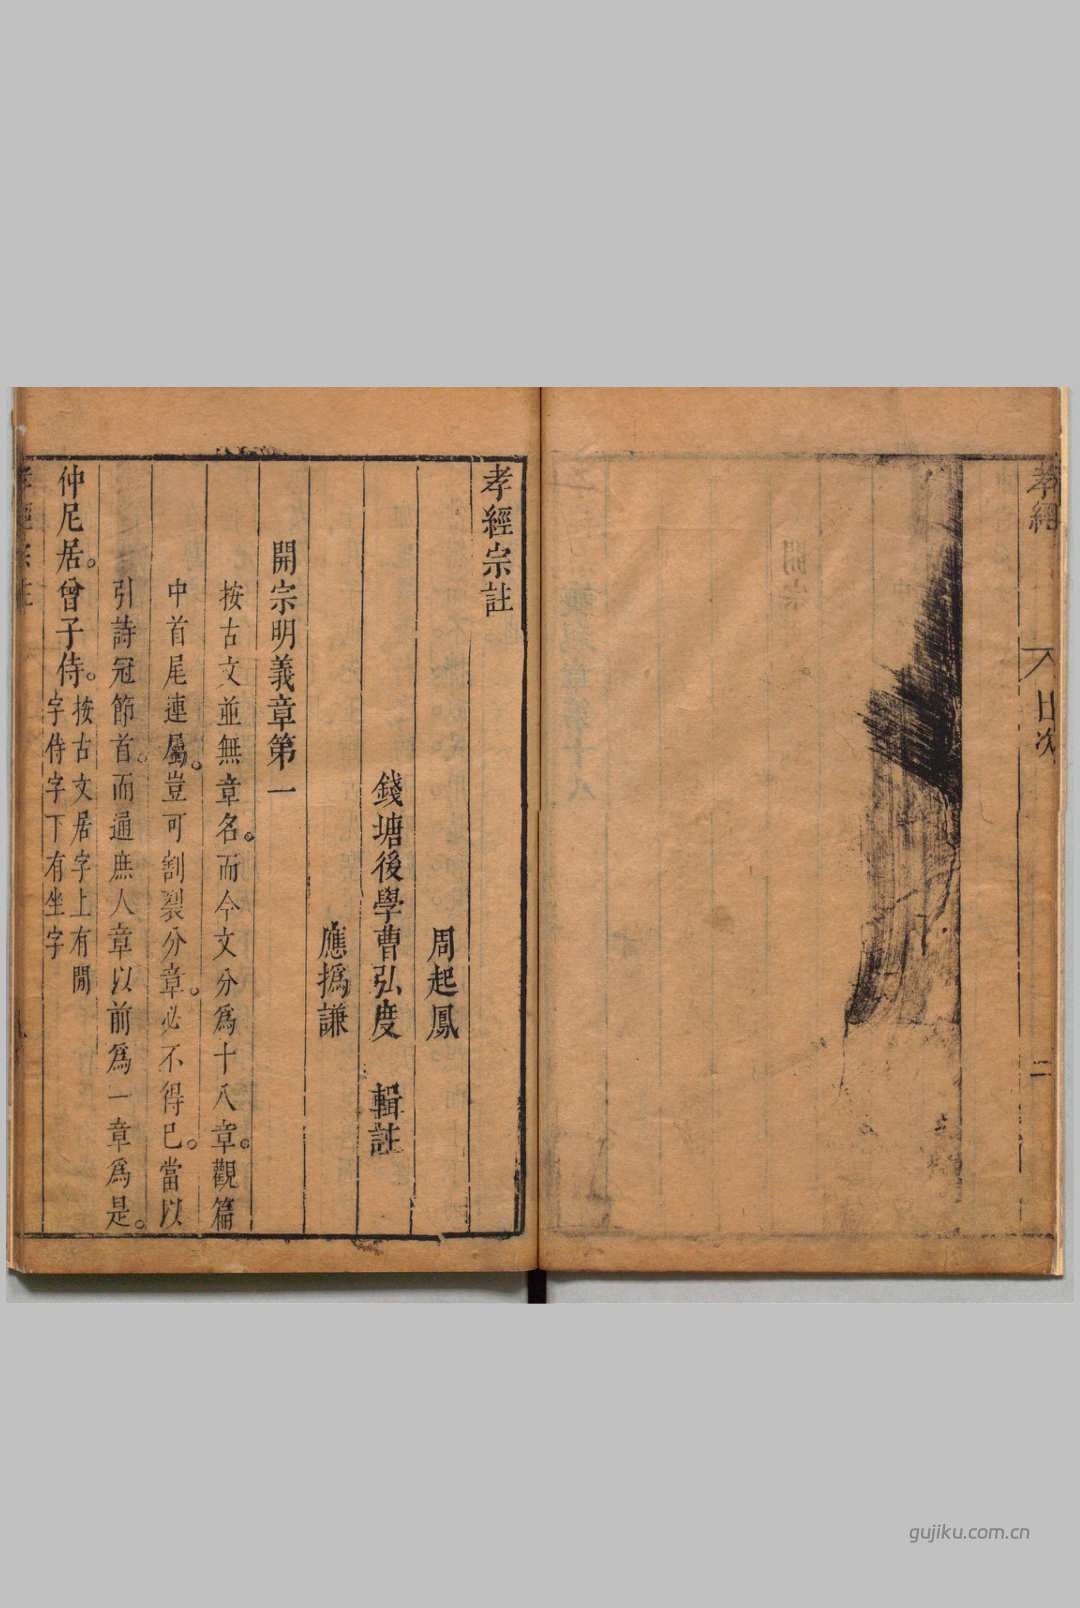 孝經
目次
二
孝經宗註
周起鳳
錢塘後學曹弘度 輯註
應撝謙
開宗明義章第一
按古文並無章名。而今文分爲十八章。觀篇
中首尾連屬。豈可割裂分章。必不得已。當以
引詩冠節首。而通庶人章以前爲一章爲是。
仲尼居。曾子侍。按古文居字上有閒
字侍字下有坐字
gujiku.com.cn